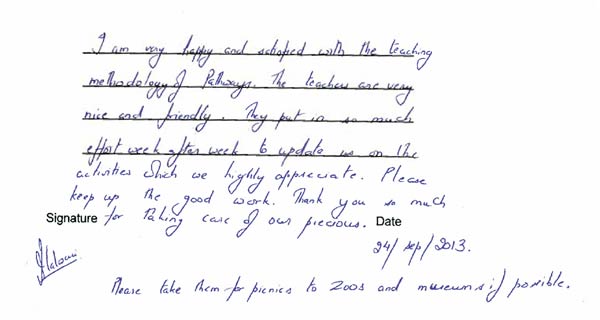 I am very happy and satisfied with the teaching
methodology of Pathways. The teachers are very
nice and friendly. They put in so much
effort week after week to update us on the
activities which we highly appreciate. Please
keep up the good work. Thank you so much
Signature for taking care of our precious. Date
24/sep/2013.
Please take them for picnics to zoos and museums if possible.